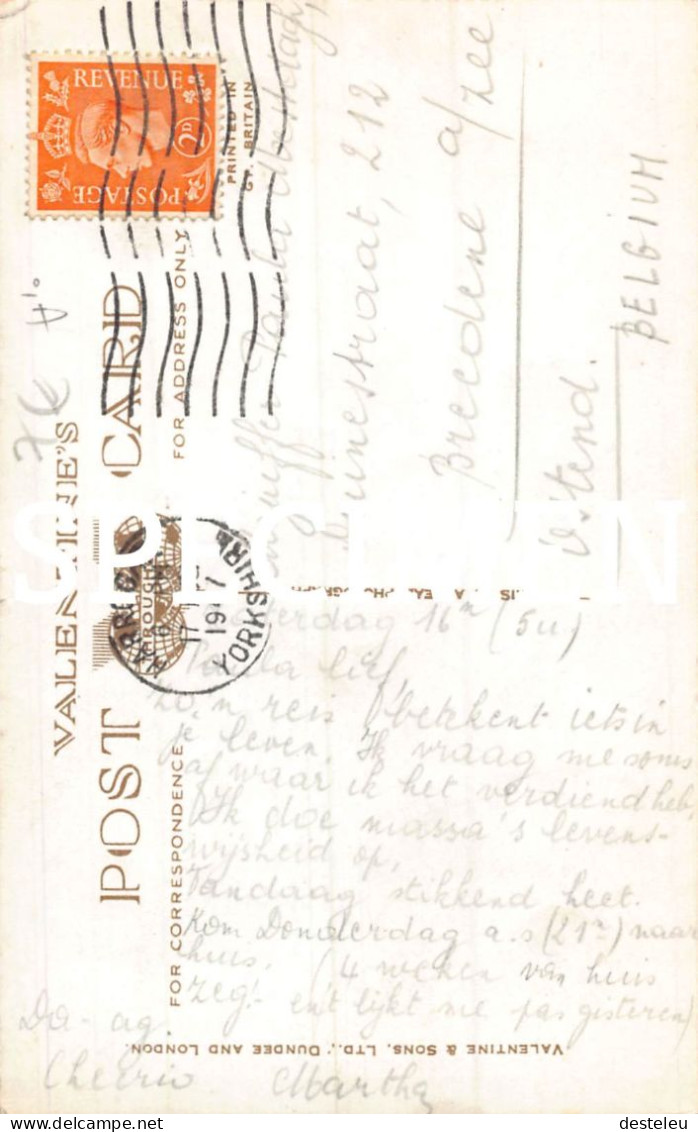 VALENTINE'S
POST CARD
FOR CORRESPONDENCE
FOR ADDRESS ONLY
PRINTED IN
GT. BRITAIN
REVENUE
2D
POSTAGE
YORKSHIRE
SPECIMEN
Paula
212
Breedene a/zee
Ostend.
BELGIUM
Zaterdag 16n (5u)
Paula lief,
zo'n reis betekent iets in
je leven. Ik vraag me soms
af waar ik het verdiend heb.
Ik doe massa's levens-
wijsheid op,
Vandaag stikkend heet.
Kom Donderdag a.s (21n) naar
huis. (4 weken van huis
zeg! en't lijkt me pas gisteren)
Da-ag.
Cheerio Martha
VALENTINE & SONS, LTD., DUNDEE AND LONDON.
desteleu